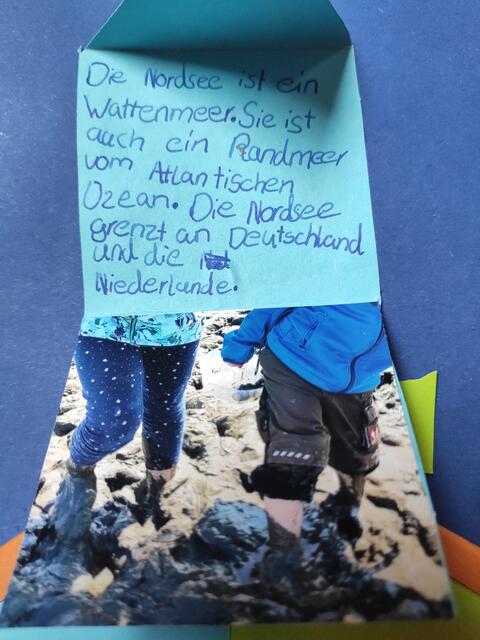 Die Nordsee ist ein
Wattenmeer. Sie ist
auch ein Randmeer
vom Atlantischen
Ozean. Die Nordsee
grenzt an Deutschland
und die
Niederlande.